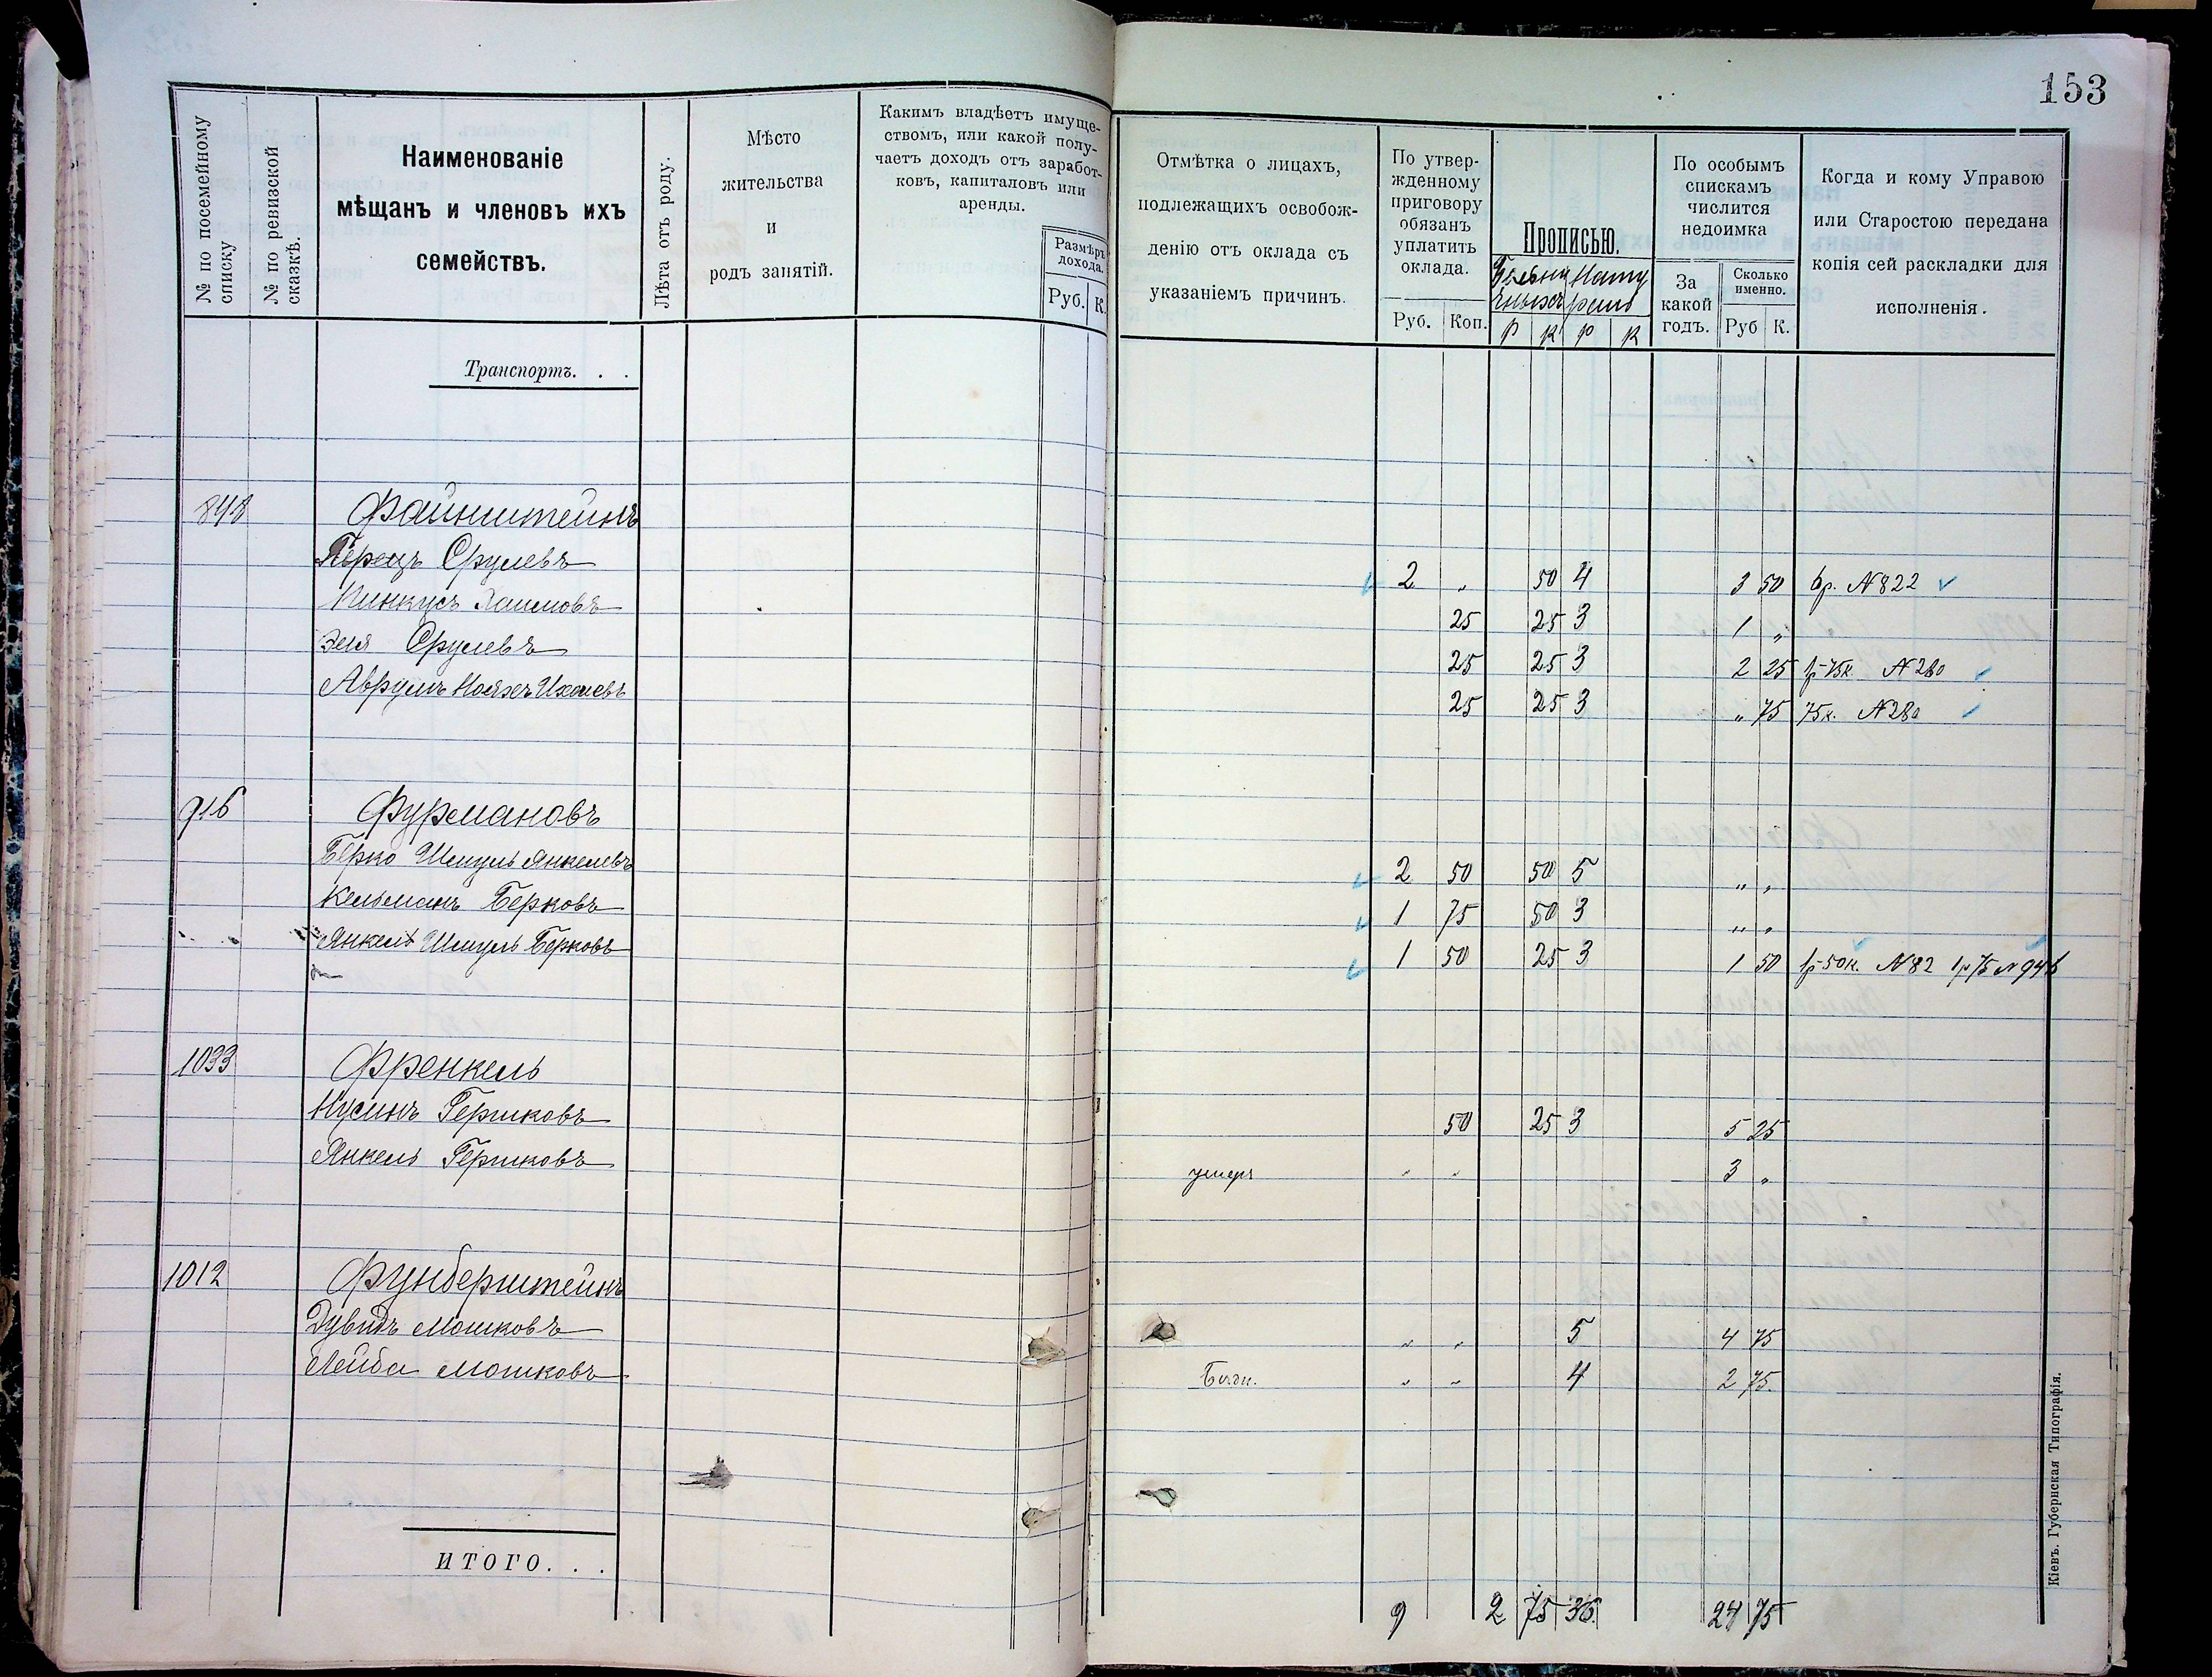 153
№ по посемейному списку
№ по ревизской сказкѣ.
Наименованіе
мѣщанъ и членовъ ихъ
семействъ.
Лѣта отъ роду.
Мѣсто
жительства
и
родъ занятій.
Какимъ владѣетъ имуще-
ствомъ, или какой полу-
чаетъ доходъ отъ заработ-
ковъ, капиталовъ или
аренды.
Размѣръ
дохода.
Руб. К.
Отмѣтка о лицахъ,
подлежащихъ освобож-
денію отъ оклада съ
указаніемъ причинъ.
По утвер-
жденному
приговору
обязанъ
уплатить
оклада.
Руб. Коп.
Прописью.
р к р к
По особымъ
спискамъ
числится
недоимка
За
какой
годъ.
Сколько
именно.
Руб К.
Когда и кому Управою
или Старостою передана
копія сей раскладки для
исполненія.
Транспортъ. . .
848 Файнштейнъ
Перецъ Срулевъ 2 „ 50 4 3 50 6р. №822
Пинкусъ Хаимовъ 25 25 3 1 „
Зеля Срулевъ 25 25 3 2 25 1р 75к. №280
Аврумъ Нояхъ Ихелевъ 25 25 3 „ 75 75к. №280
916 Фурмановъ
Берко Шмуль Янкелевъ 2 50 50 5 „ „
Кельманъ Берковъ 1 75 50 3 „ „
Янкель Шмуль Берковъ 1 50 25 3 1 50 1р 50к. №82 1р 75 №946
1033 Френкель
Нусинъ Гершковъ 50 25 3 5 25
Янкель Гершковъ умеръ „ „ 3 „
1012 Фунберштейнъ
Дувидъ Мошковъ „ „ 5 4 75
Лейба Мошковъ Бѣдн. „ „ 4 2 75.
ИТОГО. . .
9 2 75 36 24 75
Кіевъ. Губернская Типографія.